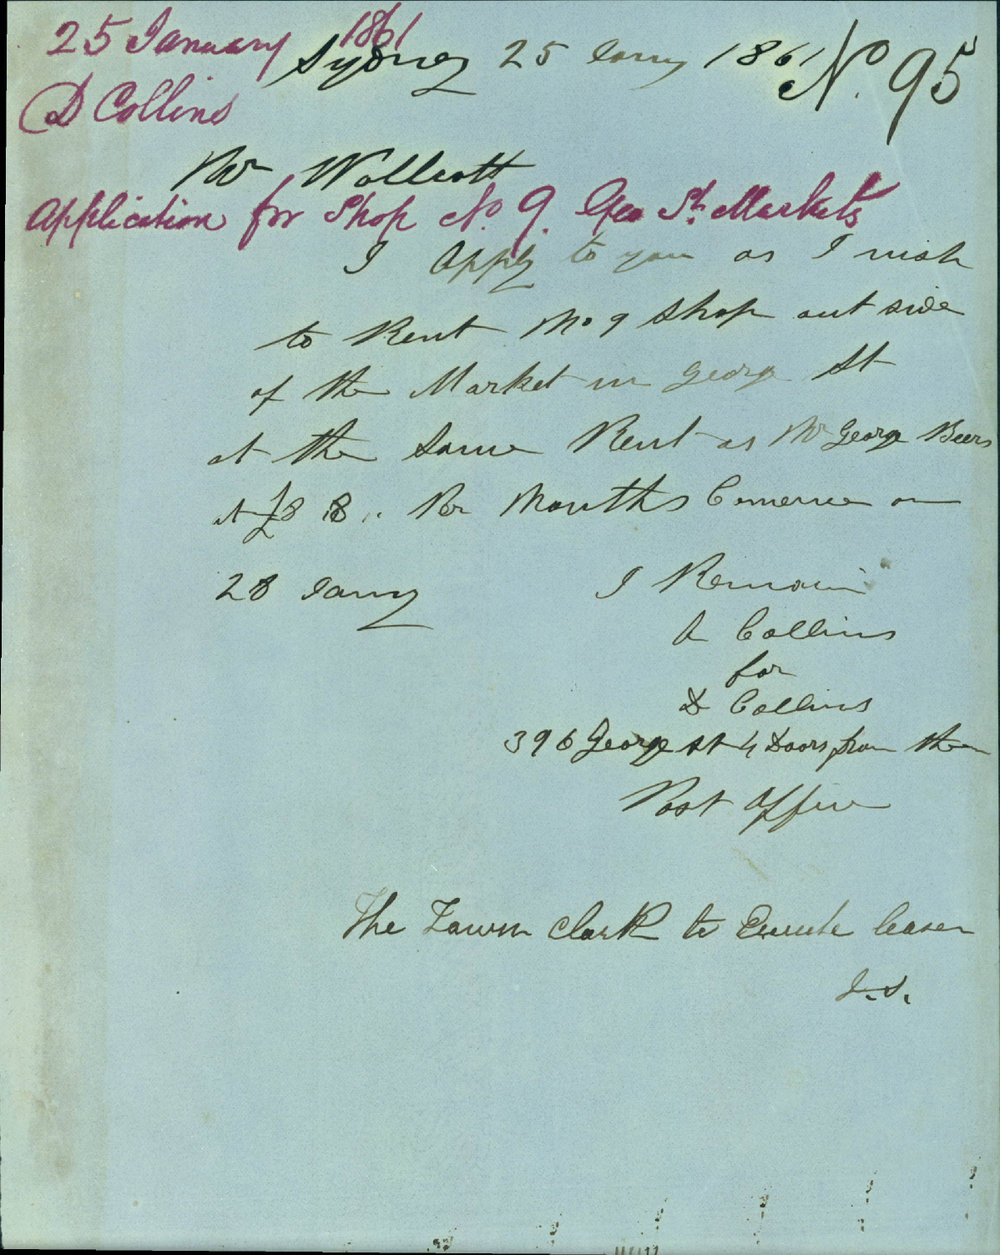 25 January 1861
Sydney 25 Janry 1861 No. 95
D Collins
Mr Wollcott
Application for Shop No. 9. Geo St. Markets
I Apply to you as I wish
to Rent No 9 Shop out side
of the Market in George St
at the Same Rent as Mr George Beers
at £8 8 .. Per Months Comence on
28 Janry I Remain
A Collins
for
D Collins
396 George st 4 Doors from the
Post Office
The Town Clark to Execute leases
J.S.